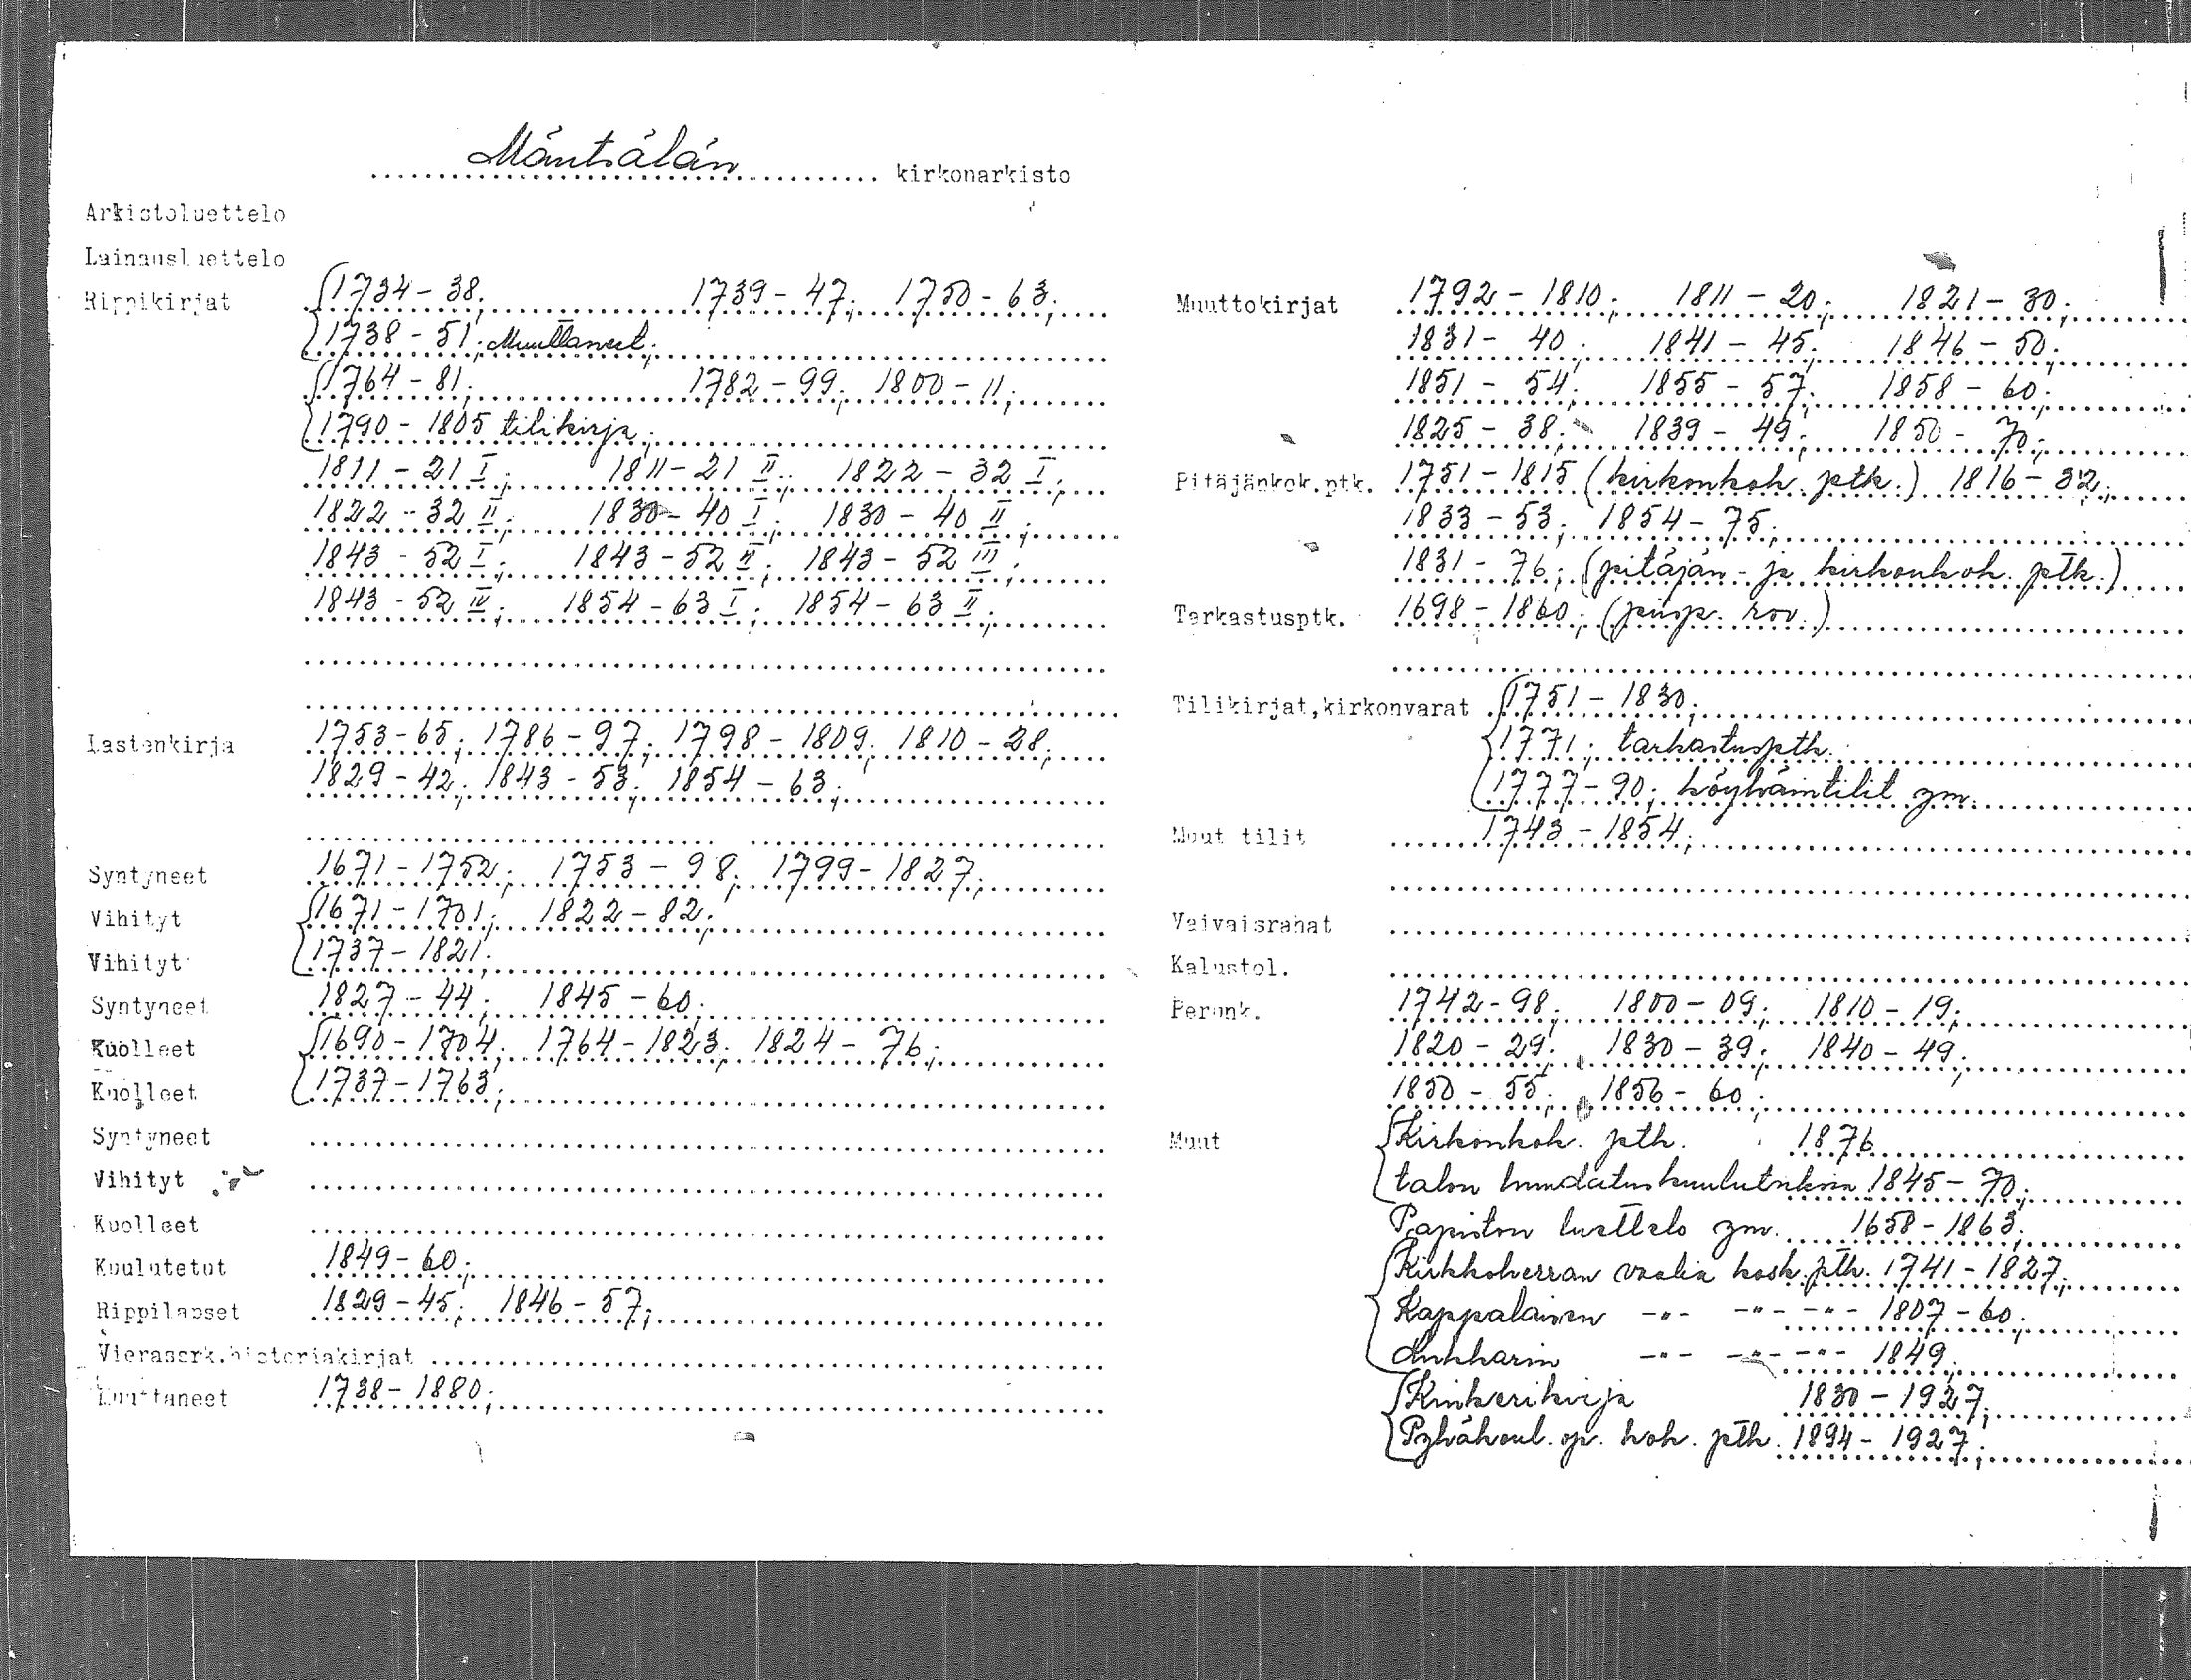 Mäntsälän kirkonarkisto
Arkistoluettelo
Lainausluettelo
Rippikirjat 1734-38; 1739-47; 1750-63;
1738-51; Muuttaneet;
1764-81; 1782-99; 1800-11;
1790-1805 tilikirja;
1811-21 I; 1811-21 II; 1822-32 I;
1822-32 II; 1830-40 I; 1830-40 II;
1843-52 I; 1843-52 II; 1843-52 III;
1843-52 IV; 1854-63 I; 1854-63 II;
Lastenkirja 1753-65; 1786-97; 1798-1809; 1810-28;
1829-42; 1843-53; 1854-63;
Syntyneet 1671-1752; 1753-98; 1799-1827;
Vihityt 1671-1701; 1822-82;
Vihityt 1737-1821;
Syntyneet 1827-44; 1845-60;
Kuolleet 1690-1704; 1764-1823; 1824-76;
Kuolleet 1737-1763;
Syntyneet
Vihityt
Kuolleet
Kuulutetut 1849-60;
Rippilapset 1829-45; 1846-57;
Vierassrk.historiakirjat
Muuttaneet 1738-1880;
Muuttokirjat 1792-1810; 1811-20; 1821-30;
1831-40; 1841-45; 1846-50;
1851-54; 1855-57; 1858-60;
1825-38; 1839-49; 1850-70;
Pitäjänkok.ptk. 1751-1815 (kirkonkok. ptk.) 1816-32;
1833-53; 1854-75;
1831-76; (pitäjän- ja kirkonkok. ptk.)
Tarkastusptk. 1698-1860; (piisp. rov.)
Tilikirjat,kirkonvarat 1751-1830;
1771; tarkastusptk.
1777-90; köyhäintilit ym.
Muut tilit 1743-1854;
Vaivaisrahat
Kalustol.
Perunk. 1742-98; 1800-09; 1810-19;
1820-29; 1830-39; 1840-49;
1850-55; 1856-60;
Muut Kirkonkok. ptk. 1876
talon 1845-70;
Papiston luettelo ym. 1658-1863;
Kirkkoherran vaalia kosk. ptk. 1741-1827;
Kappalaisen -"- -"- -"- 1807-60;
Lukkarin -"- -"- -"- 1849;
Kinkerikirja 1830-1927;
Pyhäkoul. op. kok. ptk. 1894-1927;